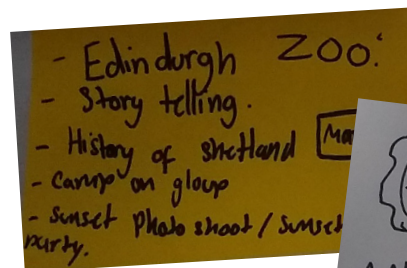 - Edinburgh ZOO:
- Story telling.
- History of shetland
- camp on gloup
- Sunset Photo shoot / Sunset
party.